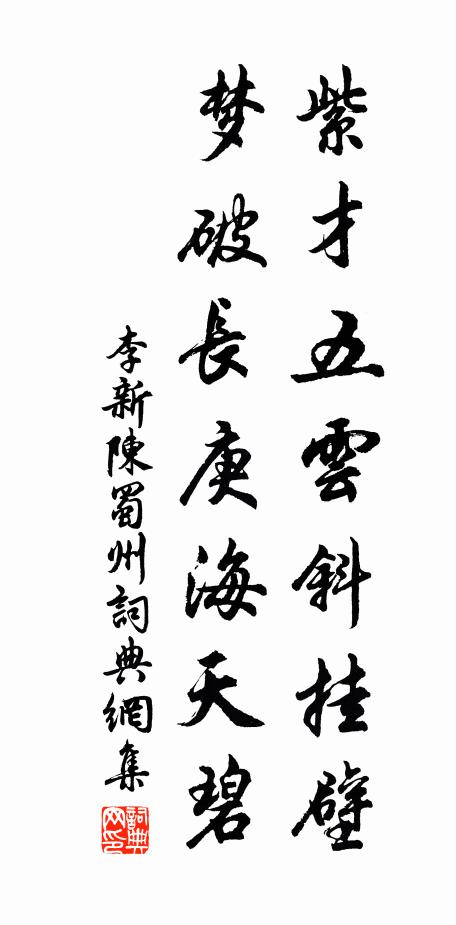 紫才五雲斜挂壁
梦破長庚海天碧
李新陳蜀州詞典網集
詞典網印